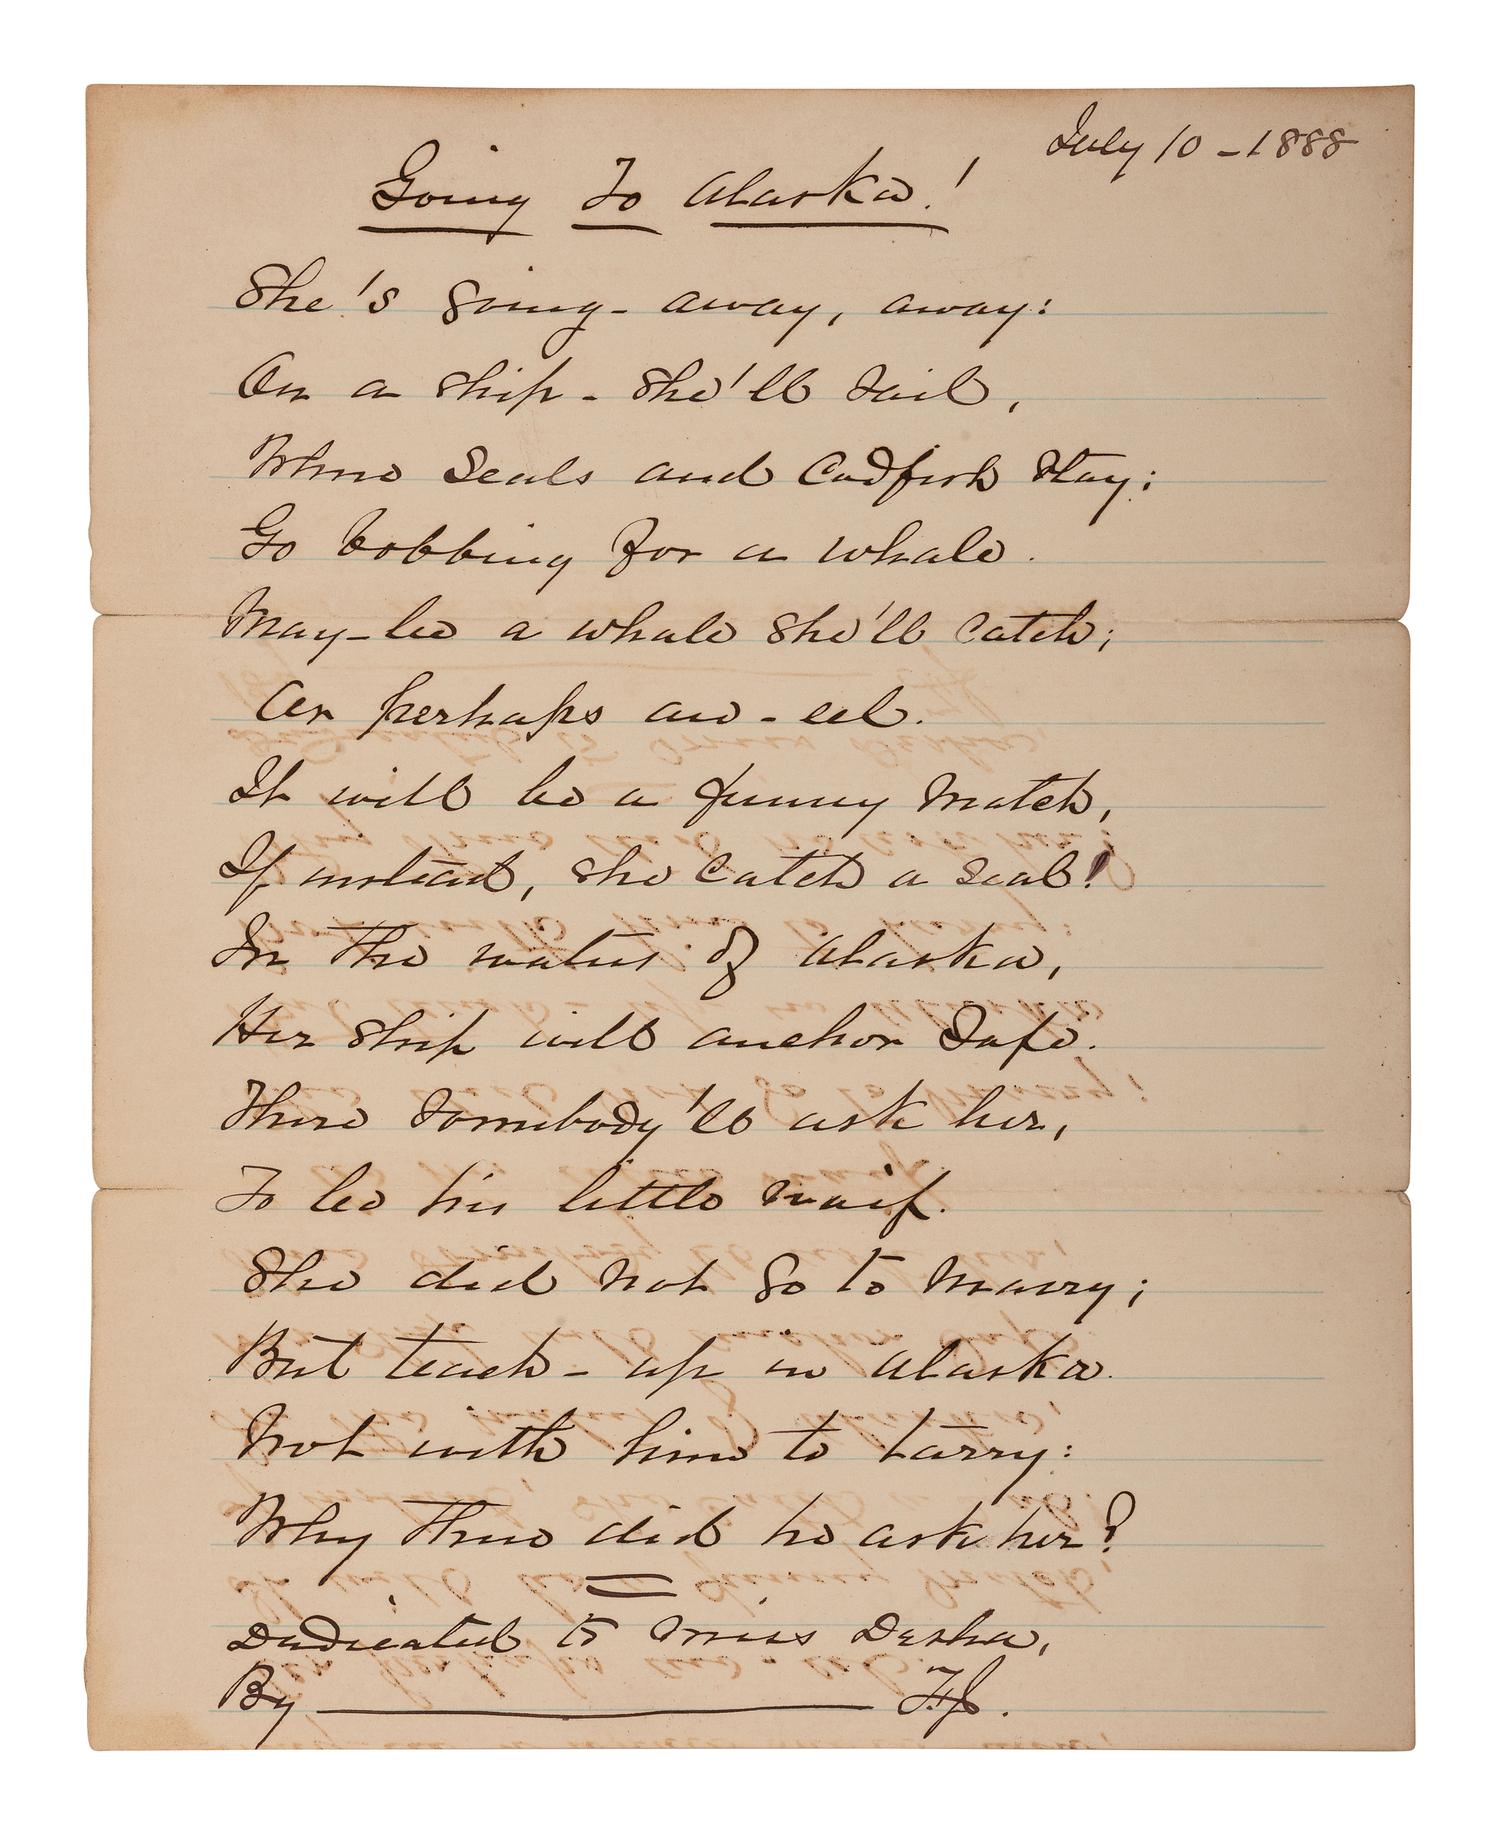 July 10 - 1888
Going To Alaska!
She's going - away, away:
On a ship - she'll sail,
Where Seals and Codfish stay:
Go bobbing for a whale.
May-be a whale she'll catch;
Or perhaps an - eel.
It will be a funny match,
If instead, she catch a seal!
In the waters of Alaska,
Her ship will anchor safe.
There somebody'll ask her,
To be his little waif.
She did not go to marry;
But teach - up in Alaska.
Not with him to tarry:
Why then did he ask her?
Dedicated to Miss Desha,
By